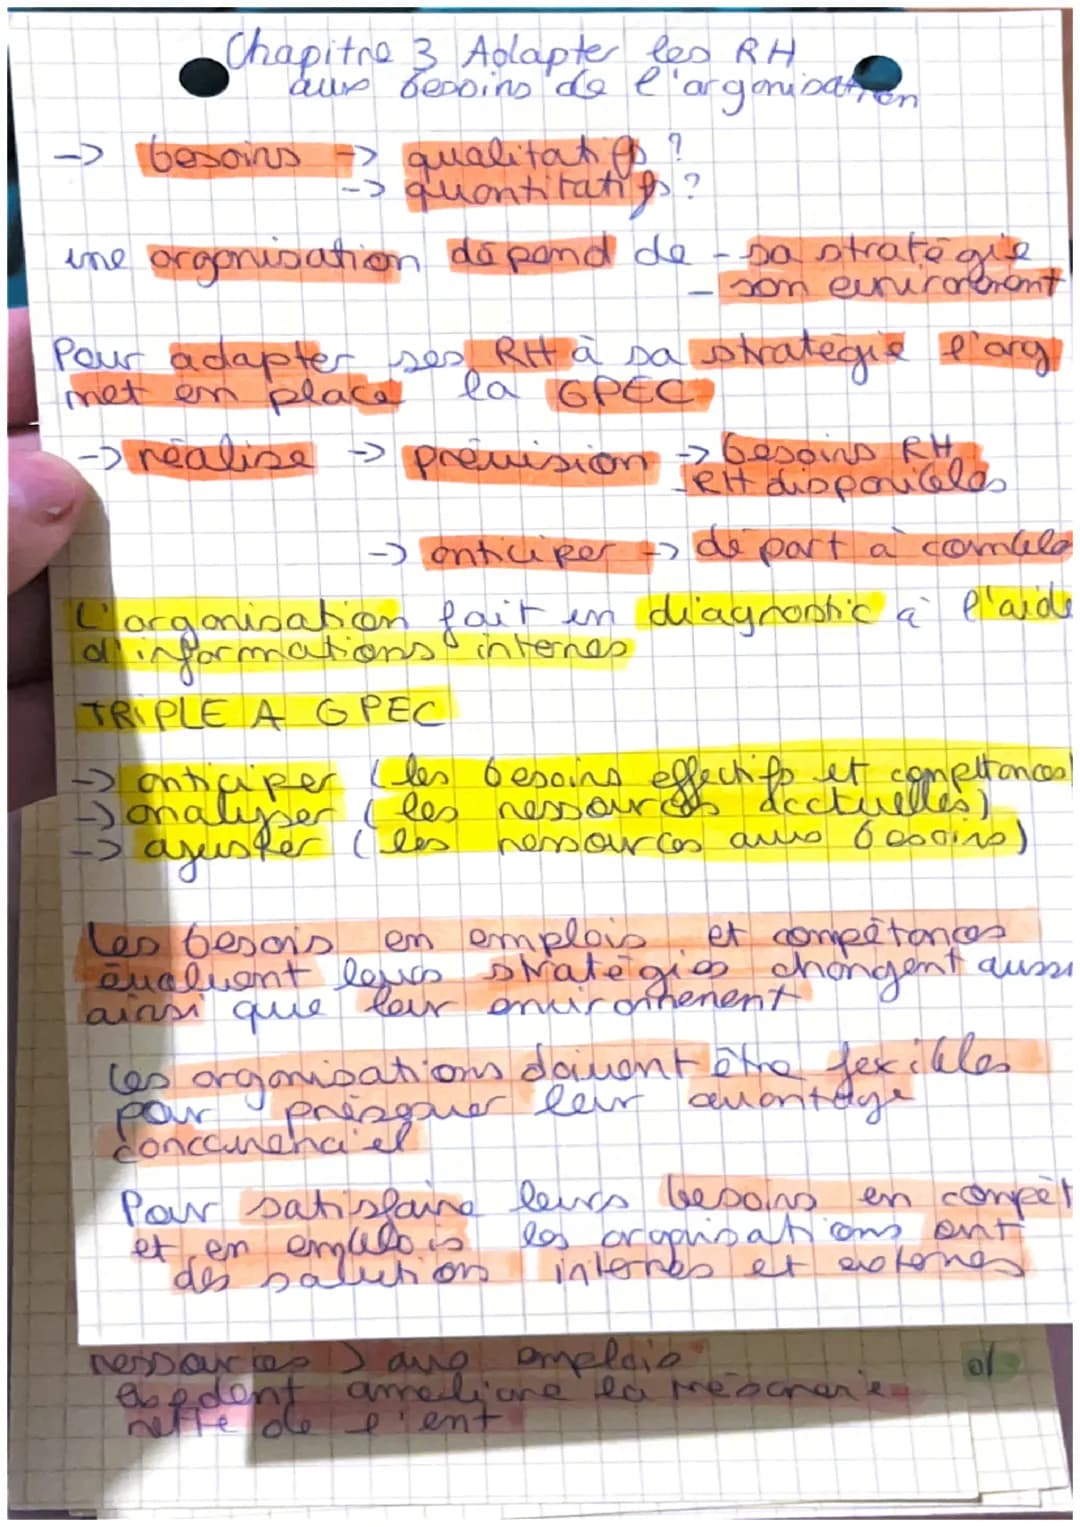 Chapitre 3 Adapter les RH
aux besoins de l'organisation
-> besoins -> qualitatifs ?
-> quantitatifs ?
une organisation dépend de - sa stratégie
- son environement
Pour adapter ses RH à sa stratégie l'org
met en place la GPEC
-> réalise -> prévision -> besoins RH
- RH disponibles
-> anticiper -> départ à combler
L'organisation fait un diagnostic à l'aide
d'informations internes
TRIPLE A GPEC
-> anticiper (les besoins effectifs et compétances)
-> analyser (les ressources acctuelles)
-> ajuster (les ressources aux besoins)
les besois en emplois et compétances
évoluent leurs stratégies changent aussi
ainsi que leur environnement
Les organisations doivent être fexibles
pour leur avantage
concurenciel
Pour satisfaire leurs besoins en compét
et en emplois les organisations ont
des solutions internes et externes
ressources > aux emplois
excedent améliore la trésorerie
nette de l'ent